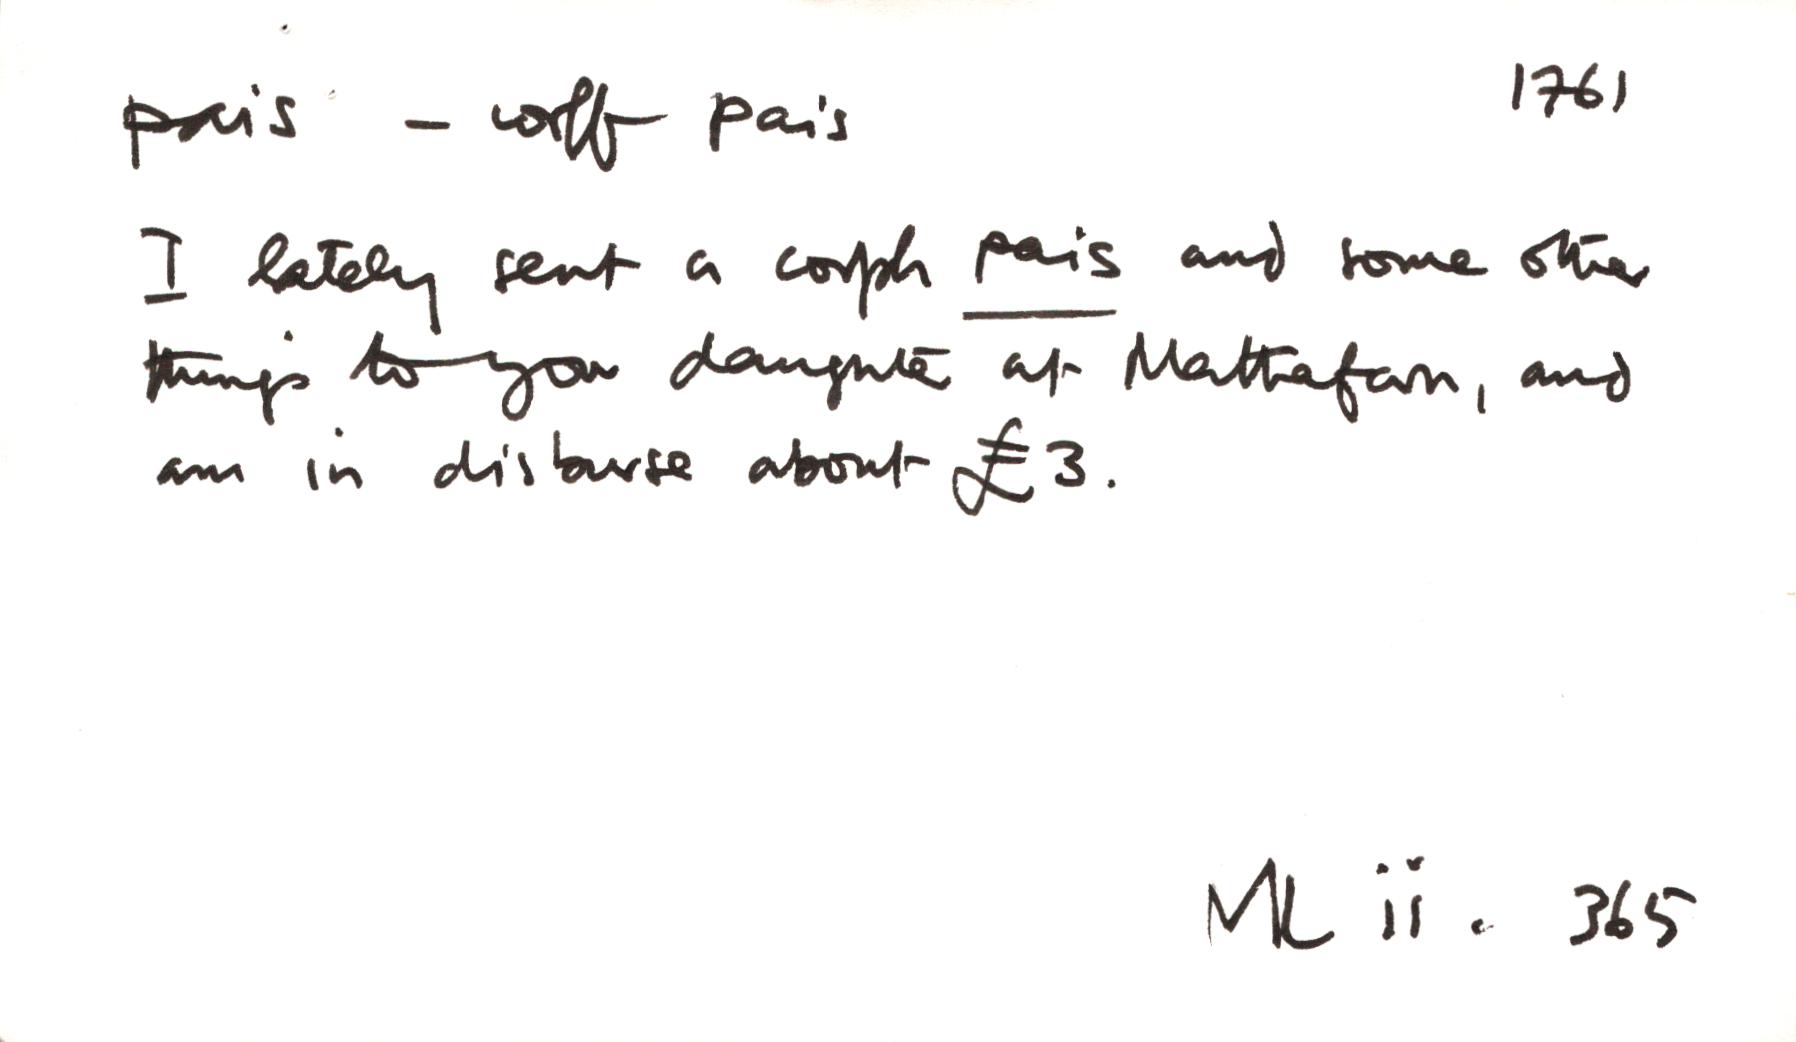 pais - corff pais 1761
I lately sent a corph pais and some other
things to your daughter at Mathafarn, and
am in disburse about £3.
ML ii. 365